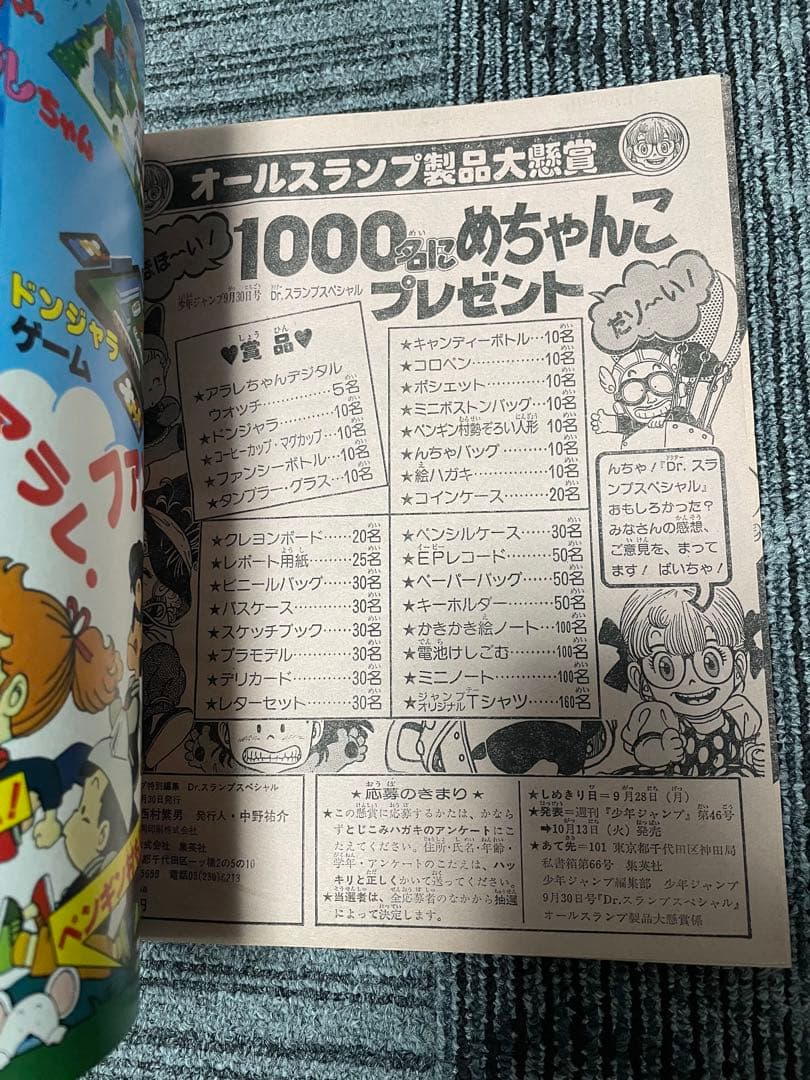 レちゃん
ドンジャラ
ゲーム
アラレ・
オールスランプ製品大懸賞
1000名にめちゃんこ
プレゼント
少年ジャンプ9月30日号 Dr.スランプスペシャル
だソ〜い!
♥賞品♥
★アラレちゃんデジタル
ウオッチ……………5名
★ドンジャラ…………10名
★コーヒーカップ・マグカップ…10名
★ファンシーボトル…10名
★タンブラー・グラス…10名
★キャンディーボトル…10名
★コロペン……………10名
★ポシェット…………10名
★ミニボストンバッグ…10名
★ペンギン村勢ぞろい人形 10名
★んちゃバッグ………10名
★絵ハガキ……………10名
★コインケース………20名
んちゃ!『Dr.スラ
ンプスペシャル』
おもしろかった?
みなさんの感想、
ご意見を、まって
ます!ばいちゃ!
★クレヨンボード……20名
★レポート用紙………25名
★ビニールバッグ……30名
★パスケース…………30名
★スケッチブック……30名
★プラモデル…………30名
★デリカード…………30名
★レターセット………30名
★ペンシルケース……30名
★EPレコード………50名
★ペーパーバッグ……50名
★キーホルダー………50名
★かきかき絵ノート…100名
★電池けしごむ………100名
★ミニノート…………100名
★ジャンプオリジナルTシャツ……160名
特別編集 Dr.スランプスペシャル
月30日発行
西村繁男 発行人・中野祐介
同印刷株式会社
株式会社 集英社
都千代田区一ッ橋2の5の10
電話03(230)6213
円
ペンギン村
★応募のきまり★
★この懸賞に応募するかたは、かなら
ずとじこみハガキのアンケートにこ
たえてください。住所・氏名・年齢・
学年・アンケートのこたえは、ハッ
キリと正しくかいて送ってください。
★当選者は、全応募者のなかから抽選
によって決定します。
★しめきり日=9月28日(月)
★発表=週刊『少年ジャンプ』第46号
➡10月13日(火)発売
★あて先=101 東京都千代田区神田局
私書箱第66号 集英社
少年ジャンプ編集部 少年ジャンプ
9月30日号『Dr.スランプスペシャル』
オールスランプ製品大懸賞係